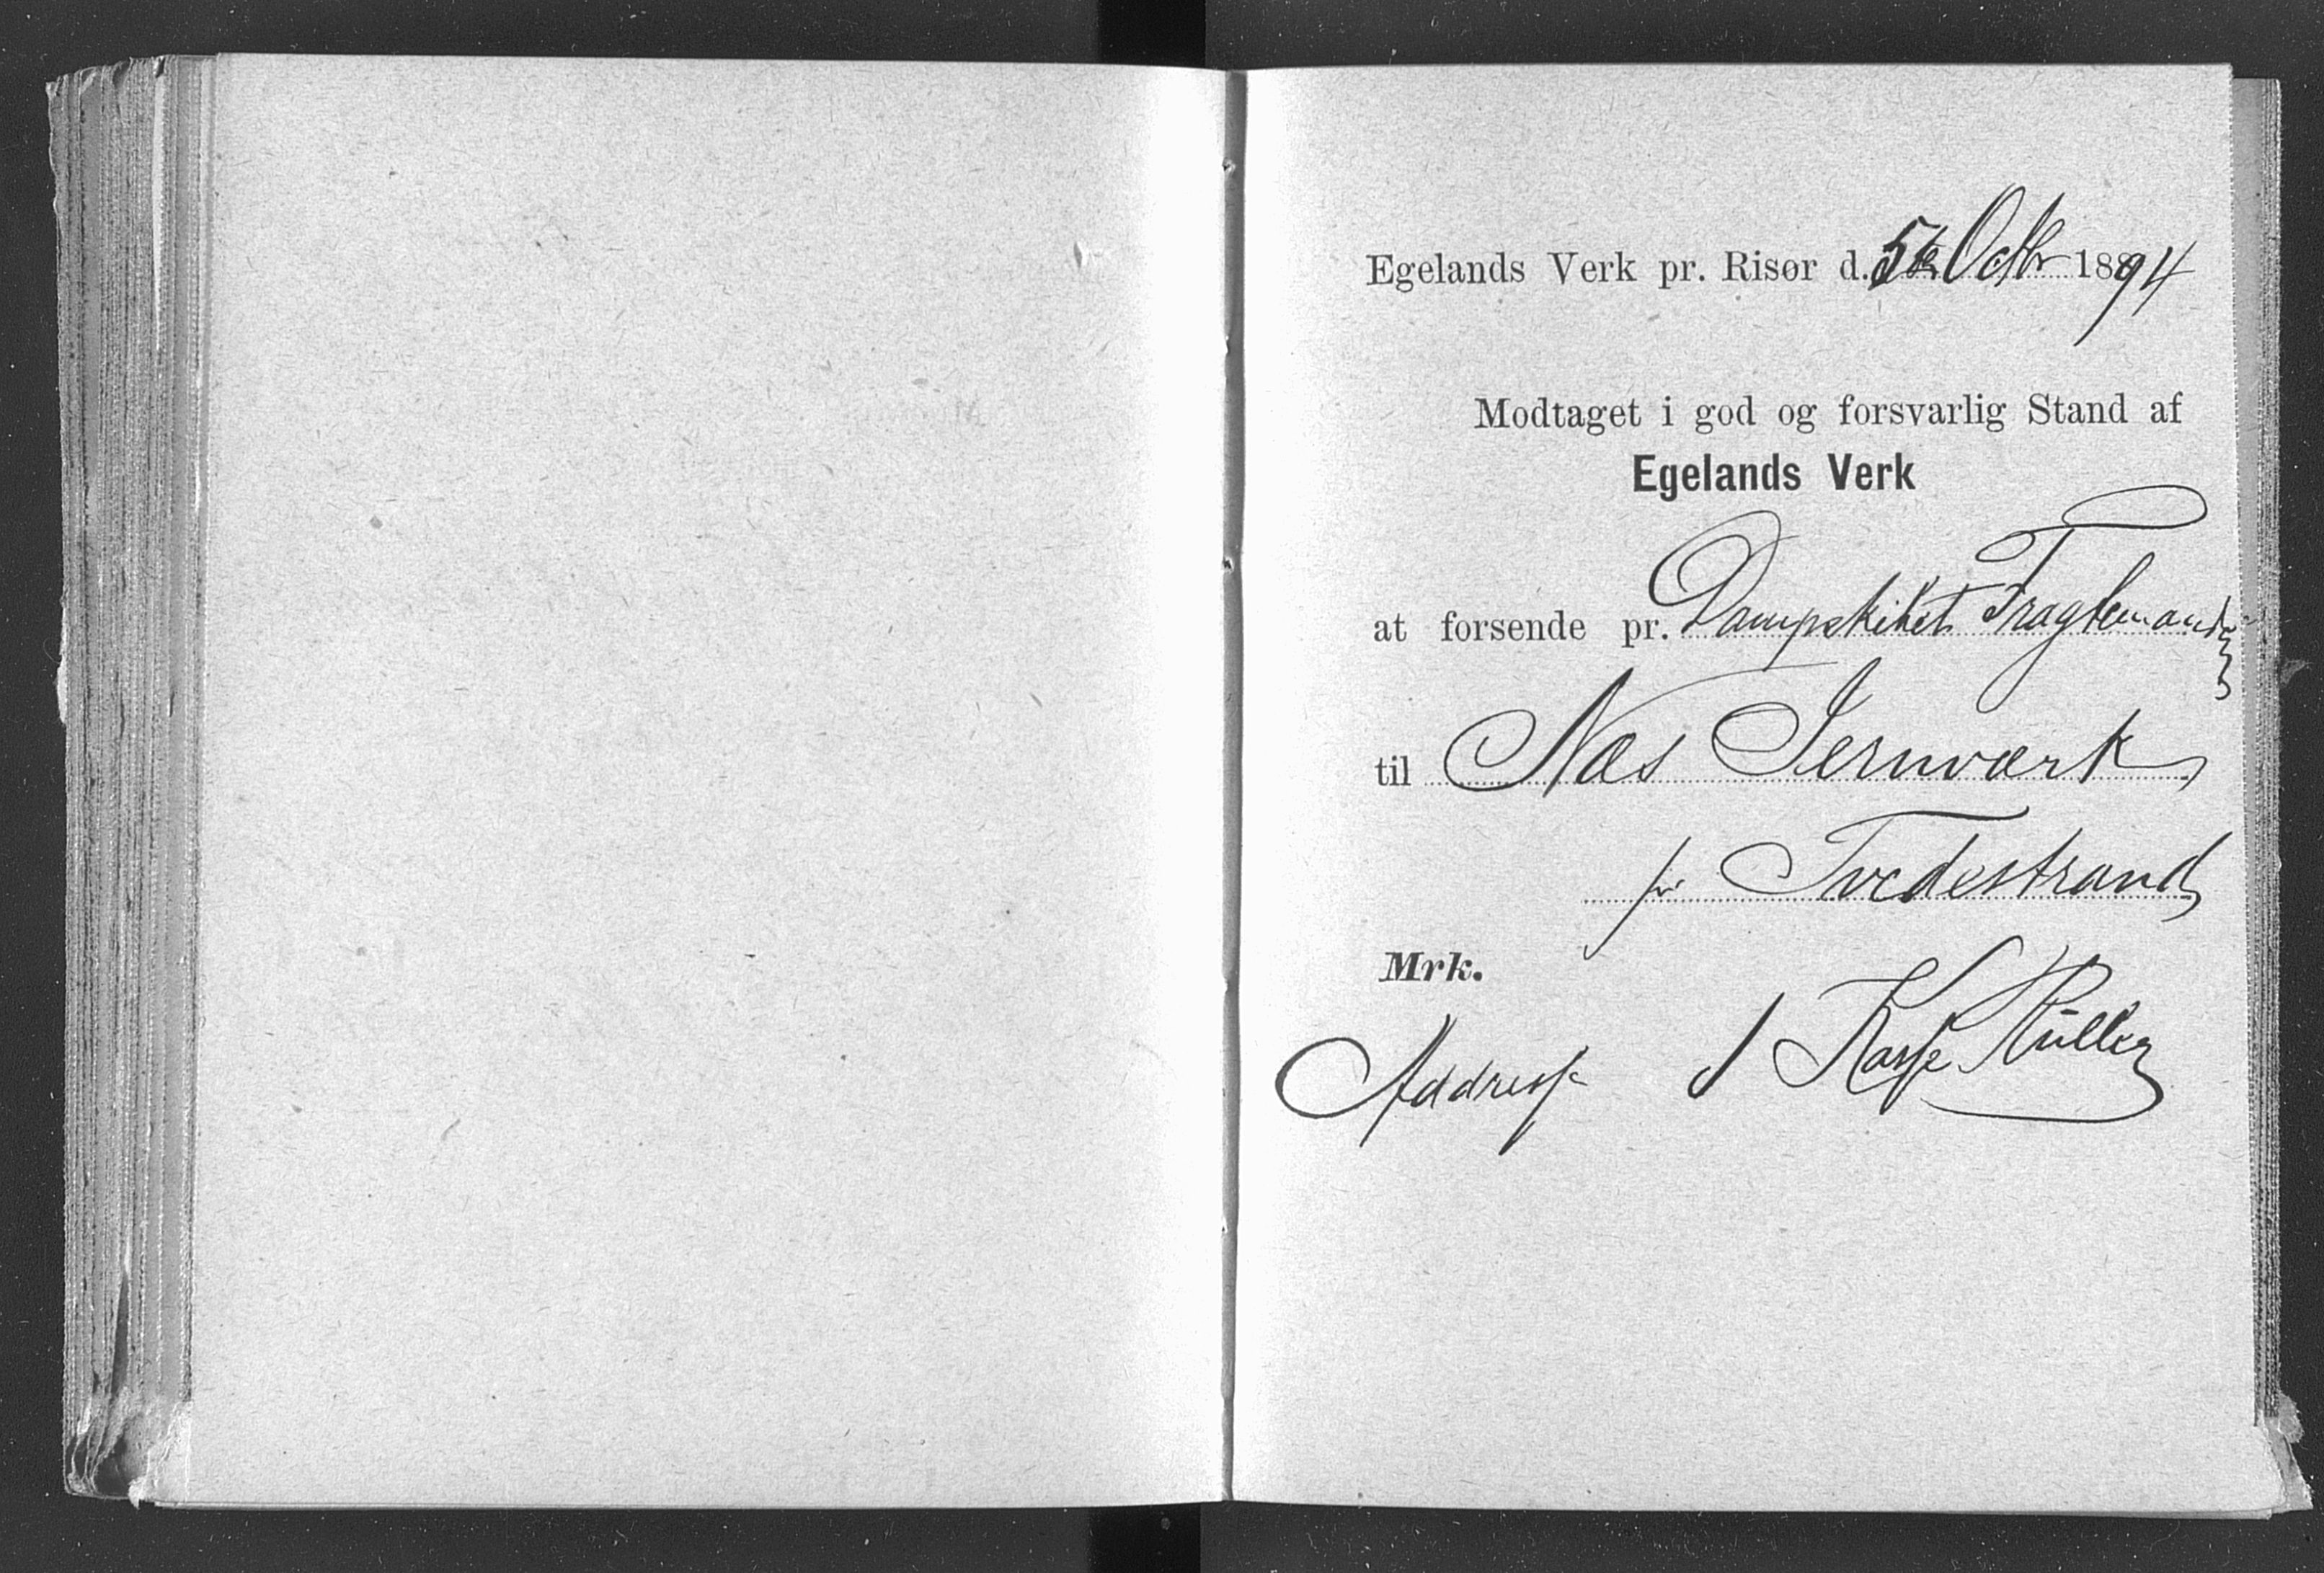 Egelands Verk pr. Risør d. 5te Octbr 1894
Modtaget i god og forsvarlig Stand af
Egelands Verk
at forsende pr. Dampskibet
til Næs Jernværk
pr Tvedestrand
Mrk.
Addresse 1 Kasse